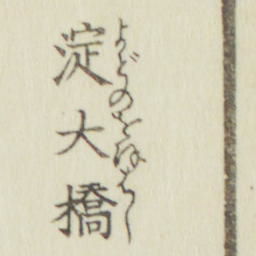 淀大橋
よどのおほはし